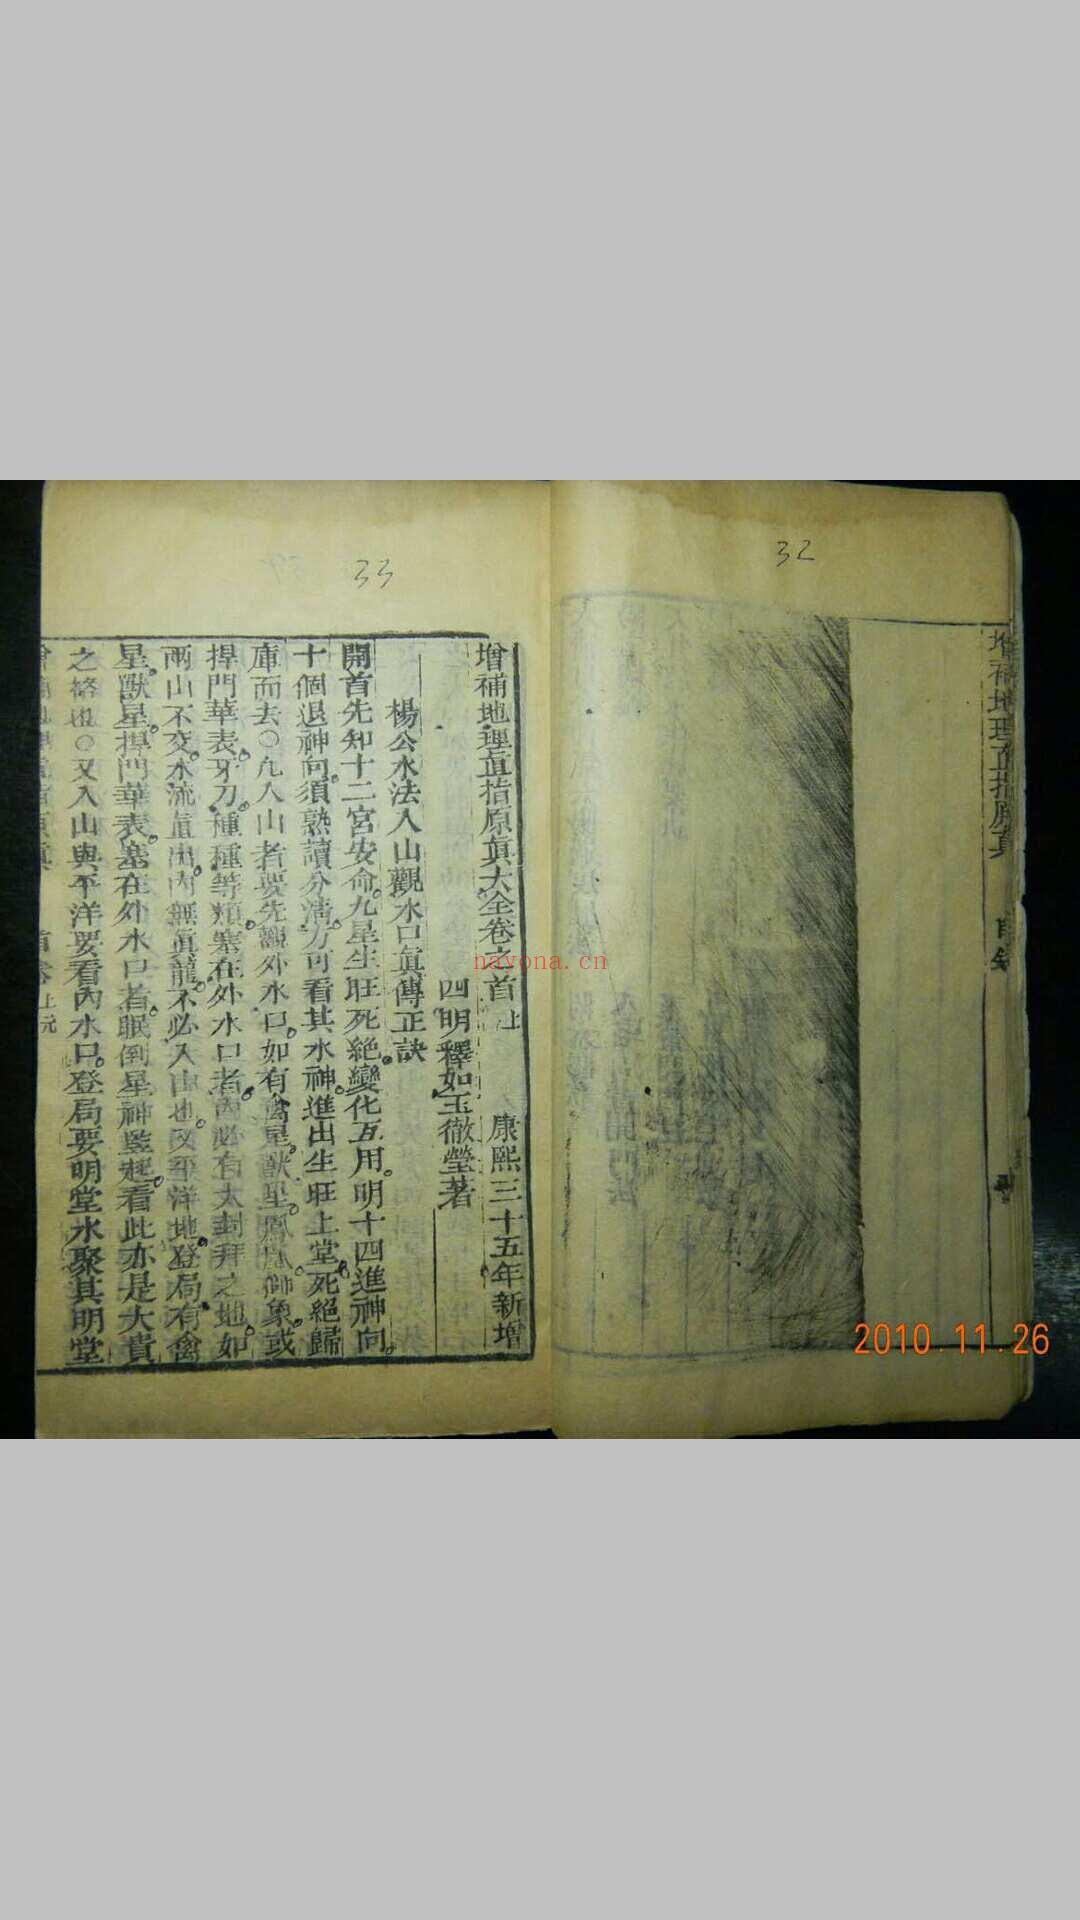 32
增補地理直指原眞
目錄
33
增補地理直指原眞大全卷之首上 康熙三十五年新增
四明釋如玉徹瑩著
楊公水法入山觀水口眞傳正訣
開首先知十二宮安命九星生旺死絕變化互用明十四進神向
十個退神向須熟讀分清方可看其水神進出生旺上堂死絕歸
庫而去○凡入山者要先觀外水口如有禽星獸星鳳凰獅象或
捍門華表牙刀種種等類塞在外水口者內必有大封拜之地如
兩山不交水流直出內無眞龍不必入山也又平洋地登局有禽
星獸星捍門華表塞在外水口者眠倒星神竪起看此亦是大貴
之格也○又入山與平洋要看內水口登局要明堂水聚其明堂
首卷上元
nayona.cn
2010.11.26